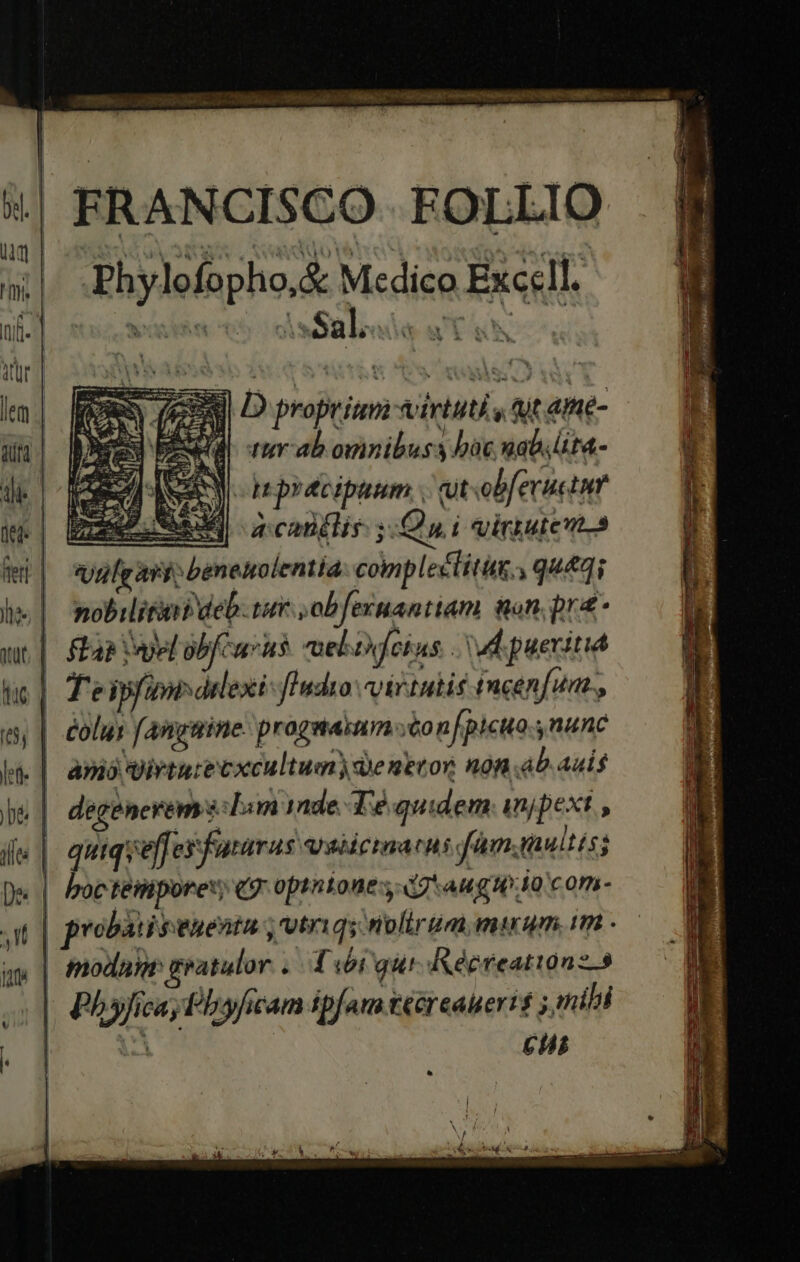 FRANCISCO FOLLIO
Phylosopho, & Medico Excell.
Sal.
ID proprium virtuti, vt ame-
tur ab omnibus; hoc nobilita-
ti præcipuum, vt obseruetur
à cunctis; Qui virtutem
vulgari beneuolentia complectitur, quæq;
nobilitati debetur obseruantiam non præ-
stat vel obscurus vel inscius. A pueritia
Te ipsum dilexi studio virtutis incensum,
colui sanguine prognatum conspicuo, nunc
amo virtute excultum, venetor non ab auis
degenerem: Iam inde Te quidem inspexi,
quiq; esses futurus vaticinatus sum multis;
hoc tempore, & opinione, & augurio com-
probatis euentu, vtriq; nostrum mirum im-
modum gratulor. Tibi qui Recreatione
Physica, Physicam ipsam recreaueris; mihi
cui